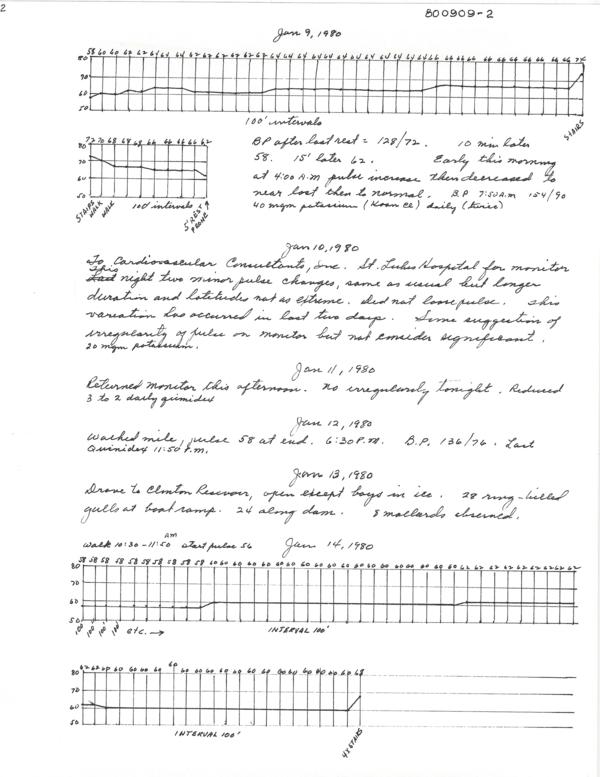 2
800909-2
Jan 9, 1980
58 60 60 62 62 64 64 64
80
70
60
50
100' intervals
STAIRS
72 70 68 68 68 66 66 66 66 62
80
70
60
50
STAIRS WALK WALK 100' intervals 5' REST & PHONE
BP after last rest = 128/72. 10 min later
58. 15' later 62. Early this morning
at 4:00 A.M pulse increase then decreased to
near lost then to normal. B.P 7:50 A.M 154/90
40 mgm potassium (Kaon Cl) daily
Jan 10, 1980
To Cardiovascular Consultants, Inc. St. Lukes Hospital for monitor
This
Last night two minor pulse changes, same as usual but longer
duration and latitudes not as extreme. Did not loose pulse. This
variation has occurred in last two days. Some suggestion of
irregularity of pulse on monitor but not consider significant.
20 mgm potassium.
Jan 11, 1980
Returned monitor this afternoon. No irregularity tonight. Reduced
3 to 2 daily quinidex
Jan 12, 1980
Walked mile, pulse 58 at end. 6:30 P.M. B.P. 136/76. Last
Quinidex 11:50 P.M.
Jan 13, 1980
Drove to Clinton Resevoir, open except bays in ice. 28 ring-billed
gulls at boat ramp. 24 along dam. 8 mallards observed.
walk 10:30 - 11:50 am start pulse 56 Jan 14, 1980
58 58 58 58 58 58 58 58 58
80
60
50
100' 100' 100' 100' etc. → INTERVAL 100'
62 62 60 60 60 60 60 60
80
70
60
50
INTERVAL 100'
4X STAIRS